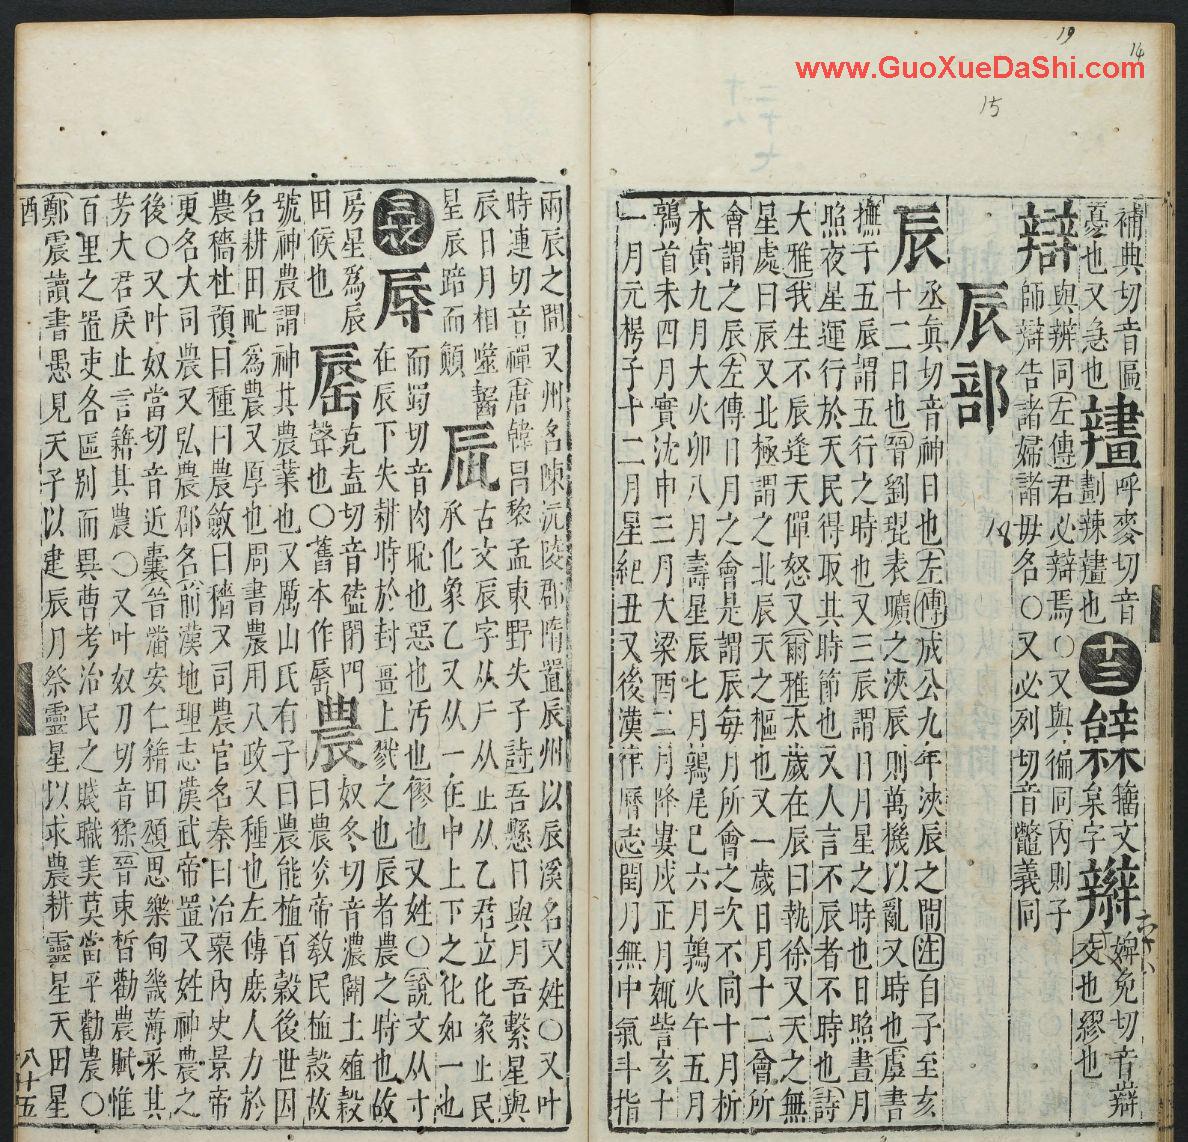 www.GuoXueDaShi.com
19
14
15
補典切音匾
憂也又急也𨐾呼麥切音
劃辣𨐾也十三辭籀文
枲字辯婢免切音辮
交也繆也
辯與辨同左傳君必辯焉○又與徧同內則子
師辯告諸婦諸毋名○又必列切音鼈義同
18
辰部
辰丞真切音神日也左傳成公九年浹辰之間注自子至亥
十二日也晉劉琨表曠之浹辰則萬機以亂又時也虞書
撫于五辰謂五行之時也又三辰謂日月星之時也日照晝月
照夜星運行於天民得取其時節也又人言不辰者不時也詩
大雅我生不辰逢天僤怒又爾雅太歲在辰曰執徐又天之無
星處曰辰又北極謂之北辰天之樞也又一歲日月十二會所
會謂之辰左傳日月之會是謂辰每月所會之次不同十月析
木寅九月大火卯八月壽星辰七月鶉尾巳六月鶉火午五月
鶉首未四月實沈申三月大梁酉二月降婁戌正月娵訾亥十
一月元枵子十二月星紀丑又後漢律曆志閏月無中氣斗指
兩辰之間又州名陳沅陵郡隋置辰州以辰溪名又姓○又叶
時連切音禪唐韓昌黎孟東野失子詩吾懸日與月吾繫星與
辰日月相噬齧
星辰踣而顛𠨷古文辰字从厂从止从乙君立化象止民
承化象乙又从一在中上下之化如一也
三辱而蜀切音肉恥也惡也汚也僇也又姓○說文从寸
在辰下失耕時於封畺上戮之也辰者農之時也故
房星爲辰
田候也㕎克盍切音磕閉門
聲也○舊本作𠪚農奴冬切音濃闢土殖穀
曰農炎帝敎民植穀故
號神農謂神其農業也又厲山氏有子曰農能植百穀後世因
名耕田甿爲農又厚也周書農用八政又種也左傳庶人力於
農穡杜預曰種曰農斂曰穡又司農官名秦曰治粟內史景帝
更名大司農又弘農郡名前漢地理志漢武帝置又姓神農之
後○又叶奴當切音近囊晉潘安仁籍田頌思樂甸畿薄采其
芳大君戾止言籍其農○又叶奴刀切音猱晉束晳勸農賦惟
百里之置吏各區别而異曹考治民之賤職美莫當乎勸農○
鄭震讀書愚見天子以建辰月祭靈星以求農耕靈星天田星
酉
八十五